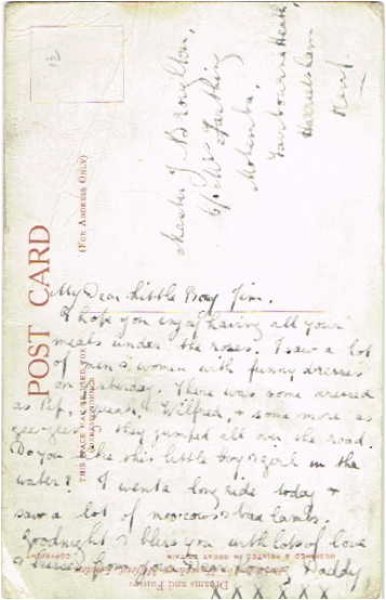 POST CARD
(FOR ADDRESS ONLY)
Master J Broughton,
c/o Mrs Farthing
Fairbourne Heath,
Harrietsham
Kent.
My Dear Little Boy Jim.
I hope you enjoy having all your
meals under the roses. I saw a lot
of men & women with funny dresses
on Saturday. There was some dressed
as Pip, Squeak, & Wilfred, & some more as
gee gees & they jumped all over the road.
Do you like this little boy & girl in the
water? I went a long ride today &
saw a lot of moocows & baa lambs.
Goodnight & bless you with lots of love
& kisses from Daddy
X X X X X X
THIS SPACE MAY BE USED FOR
Dreams and Fairies